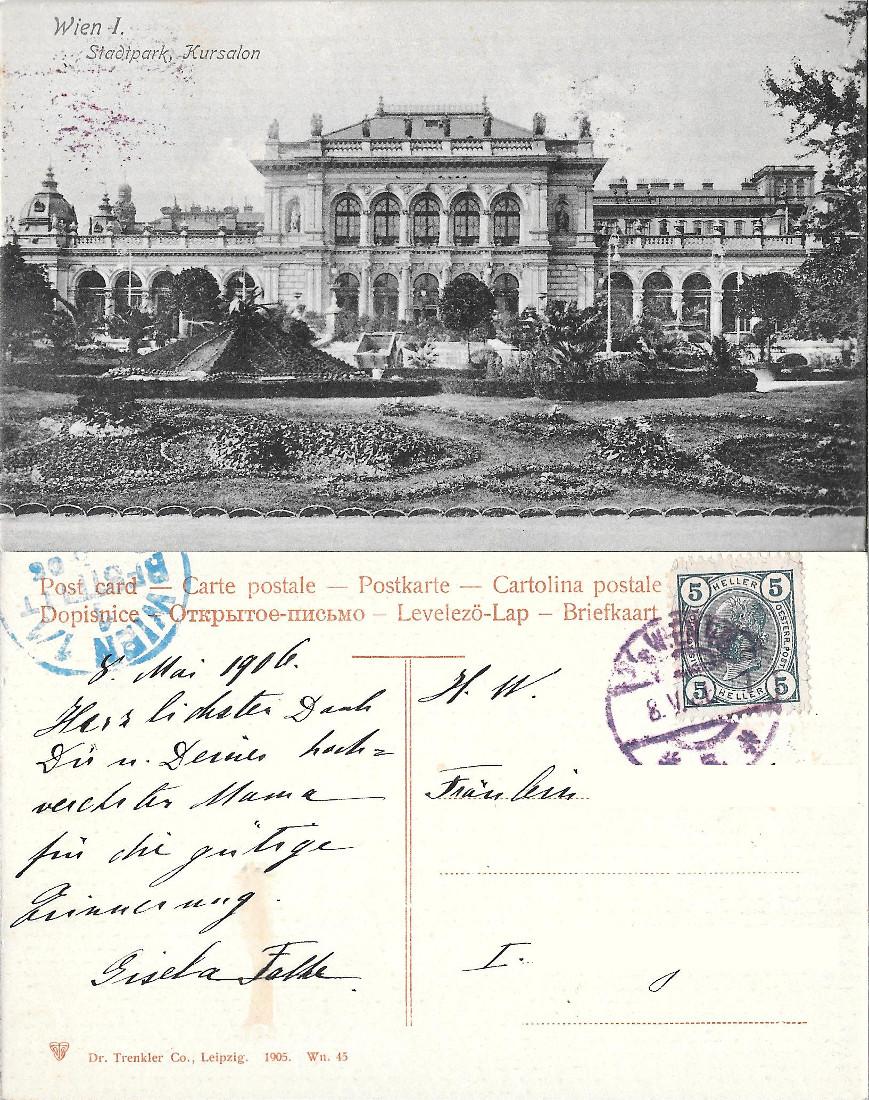 Wien I.
Stadtpark, Kursalon
Post card — Carte postale — Postkarte — Cartolina postale
Dopisnice — Открытое-письмо — Levelezö-Lap — Briefkaart
WIEN 1/1
5 HELLER 5
5 HELLER 5
WIEN
8. V
8. Mai 1906.
Herzlichsten Dank
Dir u. Deiner hoch=
verehrten Mama
für die gütige
Erinnerung.
Gisela Falke.
H. W.
Fräulein
I.
Dr. Trenkler Co., Leipzig. 1905. Wn. 45